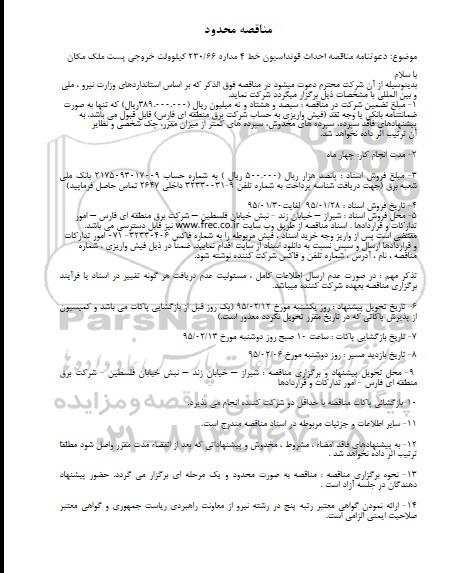 مناقصه محدود
موضوع: دعوتنامه مناقصه احداث فونداسیون خط ۴ مداره ۲۳۰/۶۶ کیلوولت خروجی پست ملک مکان
با سلام
بدینوسیله از آن شرکت محترم دعوت میشود در مناقصه فوق الذکر که بر اساس استانداردهای وزارت نیرو ، ملی
و بین المللی با مشخصات ذیل برگزار میگردد شرکت نماید.
۱- مبلغ تضمین شرکت در مناقصه : سیصد و هشتاد و نه میلیون ریال (۳۸۹.۰۰۰.۰۰۰ریال) که تنها به صورت
ضمانتنامه بانکی یا وجه نقد (فیش واریزی به حساب شرکت برق منطقه ای فارس) قابل قبول می باشد. به
پیشنهادهای فاقد سپرده، سپرده های مخدوش، سپرده های کمتر از میزان مقرر، چک شخصی و نظایر
آن ترتیب اثر داده نخواهد شد.
۲- مدت انجام کار: چهار ماه
۳- مبلغ فروش اسناد : پانصد هزار ریال (۵۰۰.۰۰۰ ریال ) به شماره حساب ۲۱۷۵۰۹۳۰۱۷۰۰۹ بانک ملی
شعبه برق (جهت دریافت شناسه پرداخت به شماره تلفن ۹-۳۲۳۳۰۰۳۱ داخلی ۲۶۴۷ تماس حاصل فرمایید)
۴- تاریخ فروش اسناد : ۹۵/۰۱/۲۸ لغایت ۹۵/۰۱/۳۰
۵- محل فروش اسناد : شیراز – خیابان زند - نبش خیابان فلسطین – شرکت برق منطقه ای فارس – امور
تدارکات و قراردادها . اسناد مناقصه از طریق وب سایت www.frec.co.ir نیز قابل دسترسی می باشد.
مقتضی است پس از واریز وجه خرید اسناد، فیش مربوطه را به شماره فاکس ۳۲۳۳۰۴۰۶- ۰۷۱ امور تدارکات
و قراردادها ارسال و سپس نسبت به دانلود اسناد از سایت اقدام نمایید. ضمنا در ذیل فیش واریزی ، شماره
مناقصه ، نام ، آدرس ، شماره تلفن و فاکس شرکت کننده نوشته شود.
تذکر مهم : در صورت عدم ارسال اطلاعات کامل ، مسئولیت عدم دریافت هر گونه تغییر در اسناد یا فرآیند
برگزاری مناقصه بعهده شرکت کننده میباشد.
۶- تاریخ تحویل پیشنهاد : روز یکشنبه مورخ ۹۵/۰۲/۱۲ (یک روز قبل از بازگشایی پاکات می باشد و کمیسیون
از پذیرش پاکاتی که در تاریخ مقرر تحویل نگردد معذور است.)
۷- تاریخ بازگشایی پاکات : ساعت ۱۰ صبح روز دوشنبه مورخ ۹۵/۰۲/۱۳
۸- تاریخ بازدید مسیر : روز دوشنبه مورخ ۹۵/۰۲/۰۶
۹- محل تحویل پیشنهاد و برگزاری مناقصه : شیراز – خیابان زند – نبش خیابان فلسطین - شرکت برق
منطقه ای فارس - امور تدارکات و قراردادها
۱۰- بازگشائی پاکات مناقصه با حداقل دو شرکت کننده انجام می پذیرد.
۱۱- سایر اطلاعات و جزئیات مربوطه در اسناد مناقصه مندرج است.
۱۲- به پیشنهادهای فاقد امضاء ، مشروط ، مخدوش و پیشنهاداتی که بعد از انقضاء مدت مقرر واصل شود مطلقا
ترتیب اثر داده نخواهد شد .
۱۳- نحوه برگزاری مناقصه : مناقصه به صورت محدود و یک مرحله ای برگزار می گردد. حضور پیشنهاد
دهندگان در جلسه آزاد است .
۱۴- ارائه نمودن گواهی معتبر رتبه پنج در رشته نیرو از معاونت راهبردی ریاست جمهوری و گواهی معتبر
صلاحیت ایمنی الزامی است.